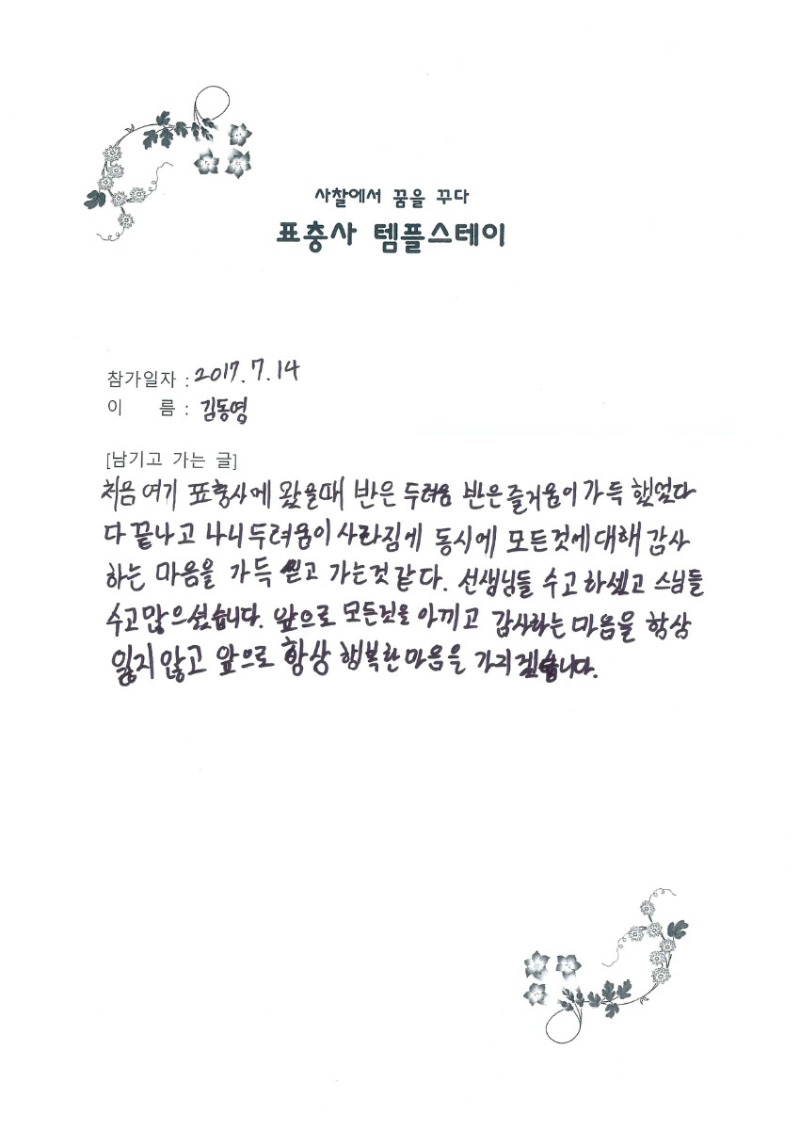 사찰에서 꿈을 꾸다
표충사 템플스테이
참가일자 : 2017. 7. 14
이 름 : 김동영
[남기고 가는 글]
처음 여기 표충사에 왔을때 반은 두려움 반은 즐거움이 가득 했었다
다 끝나고 나니 두려움이 사라짐에 동시에 모든것에 대해 감사
하는 마음을 가득 얻고 가는것 같다. 선생님들 수고 하셨고 스님들
수고 많으셨습니다. 앞으로 모든것을 아끼고 감사하는 마음을 항상
잃지 않고 앞으로 항상 행복한 마음을 가지겠습니다.